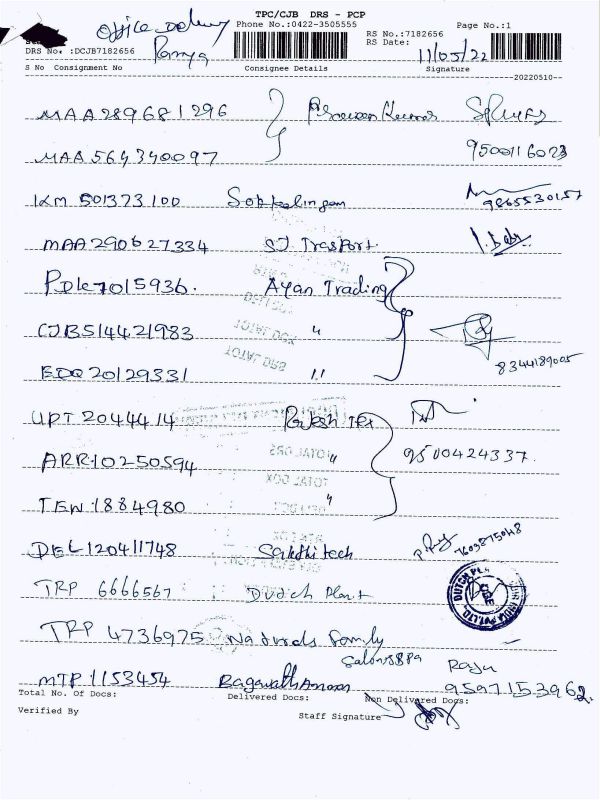 TPC/CJB DRS - PCP
Office Delivery
Phone No.:0422-3505555
Page No.:1
RS No.:7182656
RS Date:
11/05/22
DRS No. :DCJB7182656
Ramya
S No Consignment No Consignee Details Signature
20220510
MAA289681296
MAA564340097
9500116023
KM 501373100
9865530157
MAA290627334 SJ Trasport
PDK7015936. Ayan Trading
CJB514421983 "
EDQ20129331 "
8344189005
UPT 2044414
ARR10250594 "
9500424337.
TEN 1884980 "
DEL120411748 Sakthi tech
7603875048
TRP 6666567 Dutch Plant
TRP 4736975 Naturals Family
Salon & Spa
Raju
MTP 1153454
9597153962.
Total No. Of Docs: Delivered Docs: Non Delivered Docs:
Verified By Staff Signature